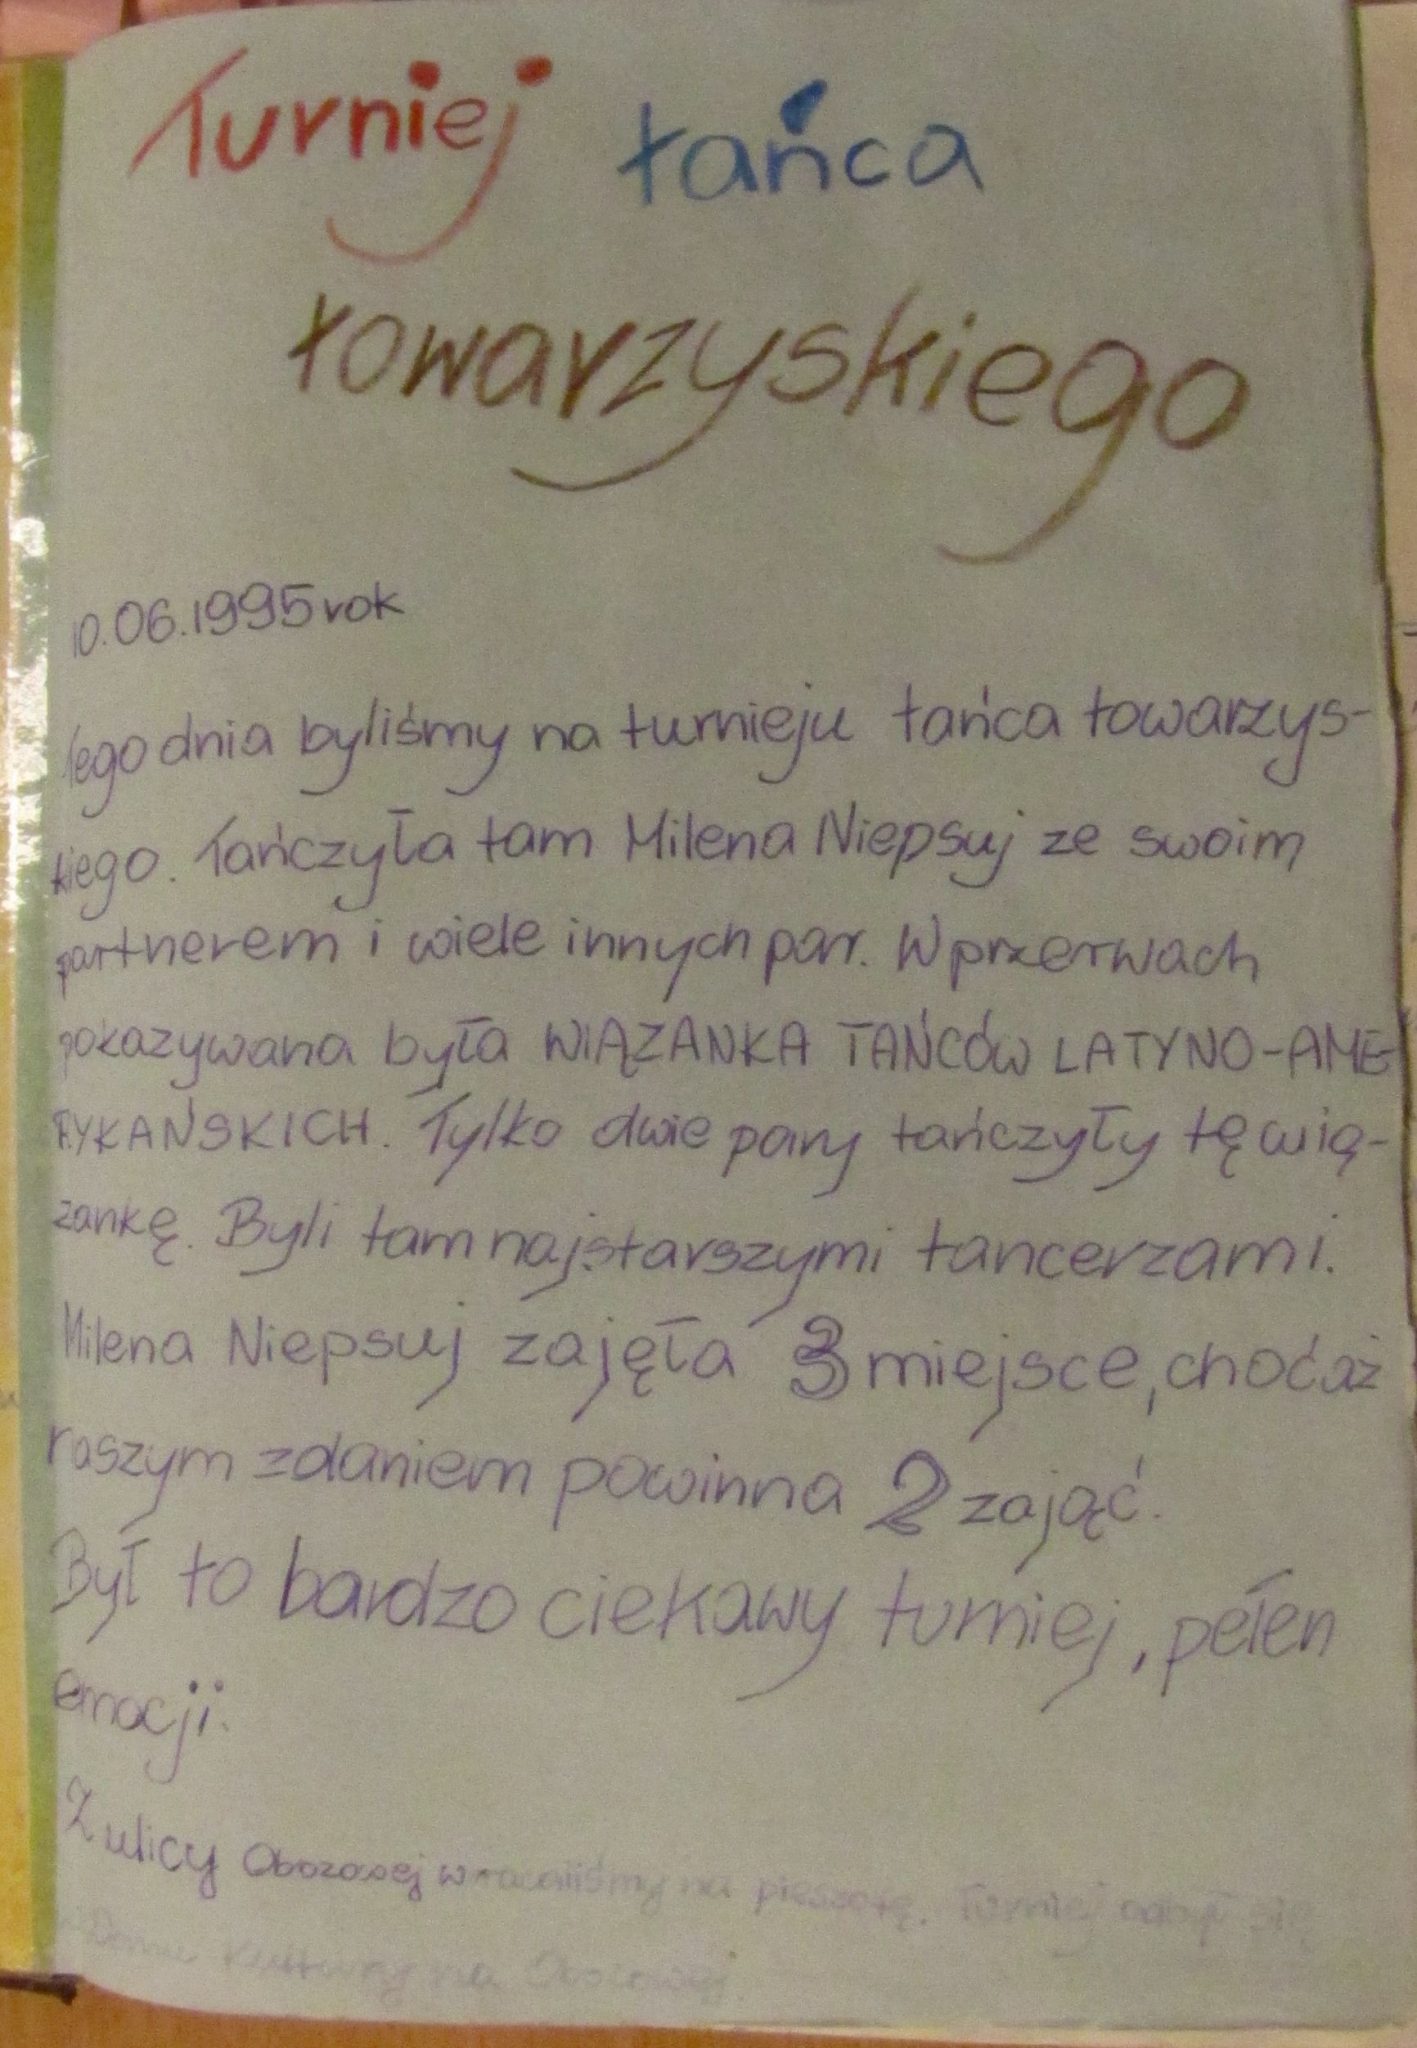 Turniej tańca
towarzyskiego
10.06.1995 rok
Tego dnia byliśmy na turnieju tańca towarzys-
kiego. Tańczyła tam Milena Niepsuj ze swoim
partnerem i wiele innych par. W przerwach
pokazywana była WIĄZANKA TAŃCÓW LATYNO-AME-
RYKAŃSKICH. Tylko dwie pary tańczyły tę wią-
zankę. Byli tam najstarszymi tancerzami.
Milena Niepsuj zajęła 3 miejsce, choćaż
naszym zdaniem powinna 2 zająć.
Był to bardzo ciekawy turniej, pełen
emocji.
Z ulicy Obozowej wracaliśmy na piechotę. Turniej odbył się
Domu Kultury na Obozowej.